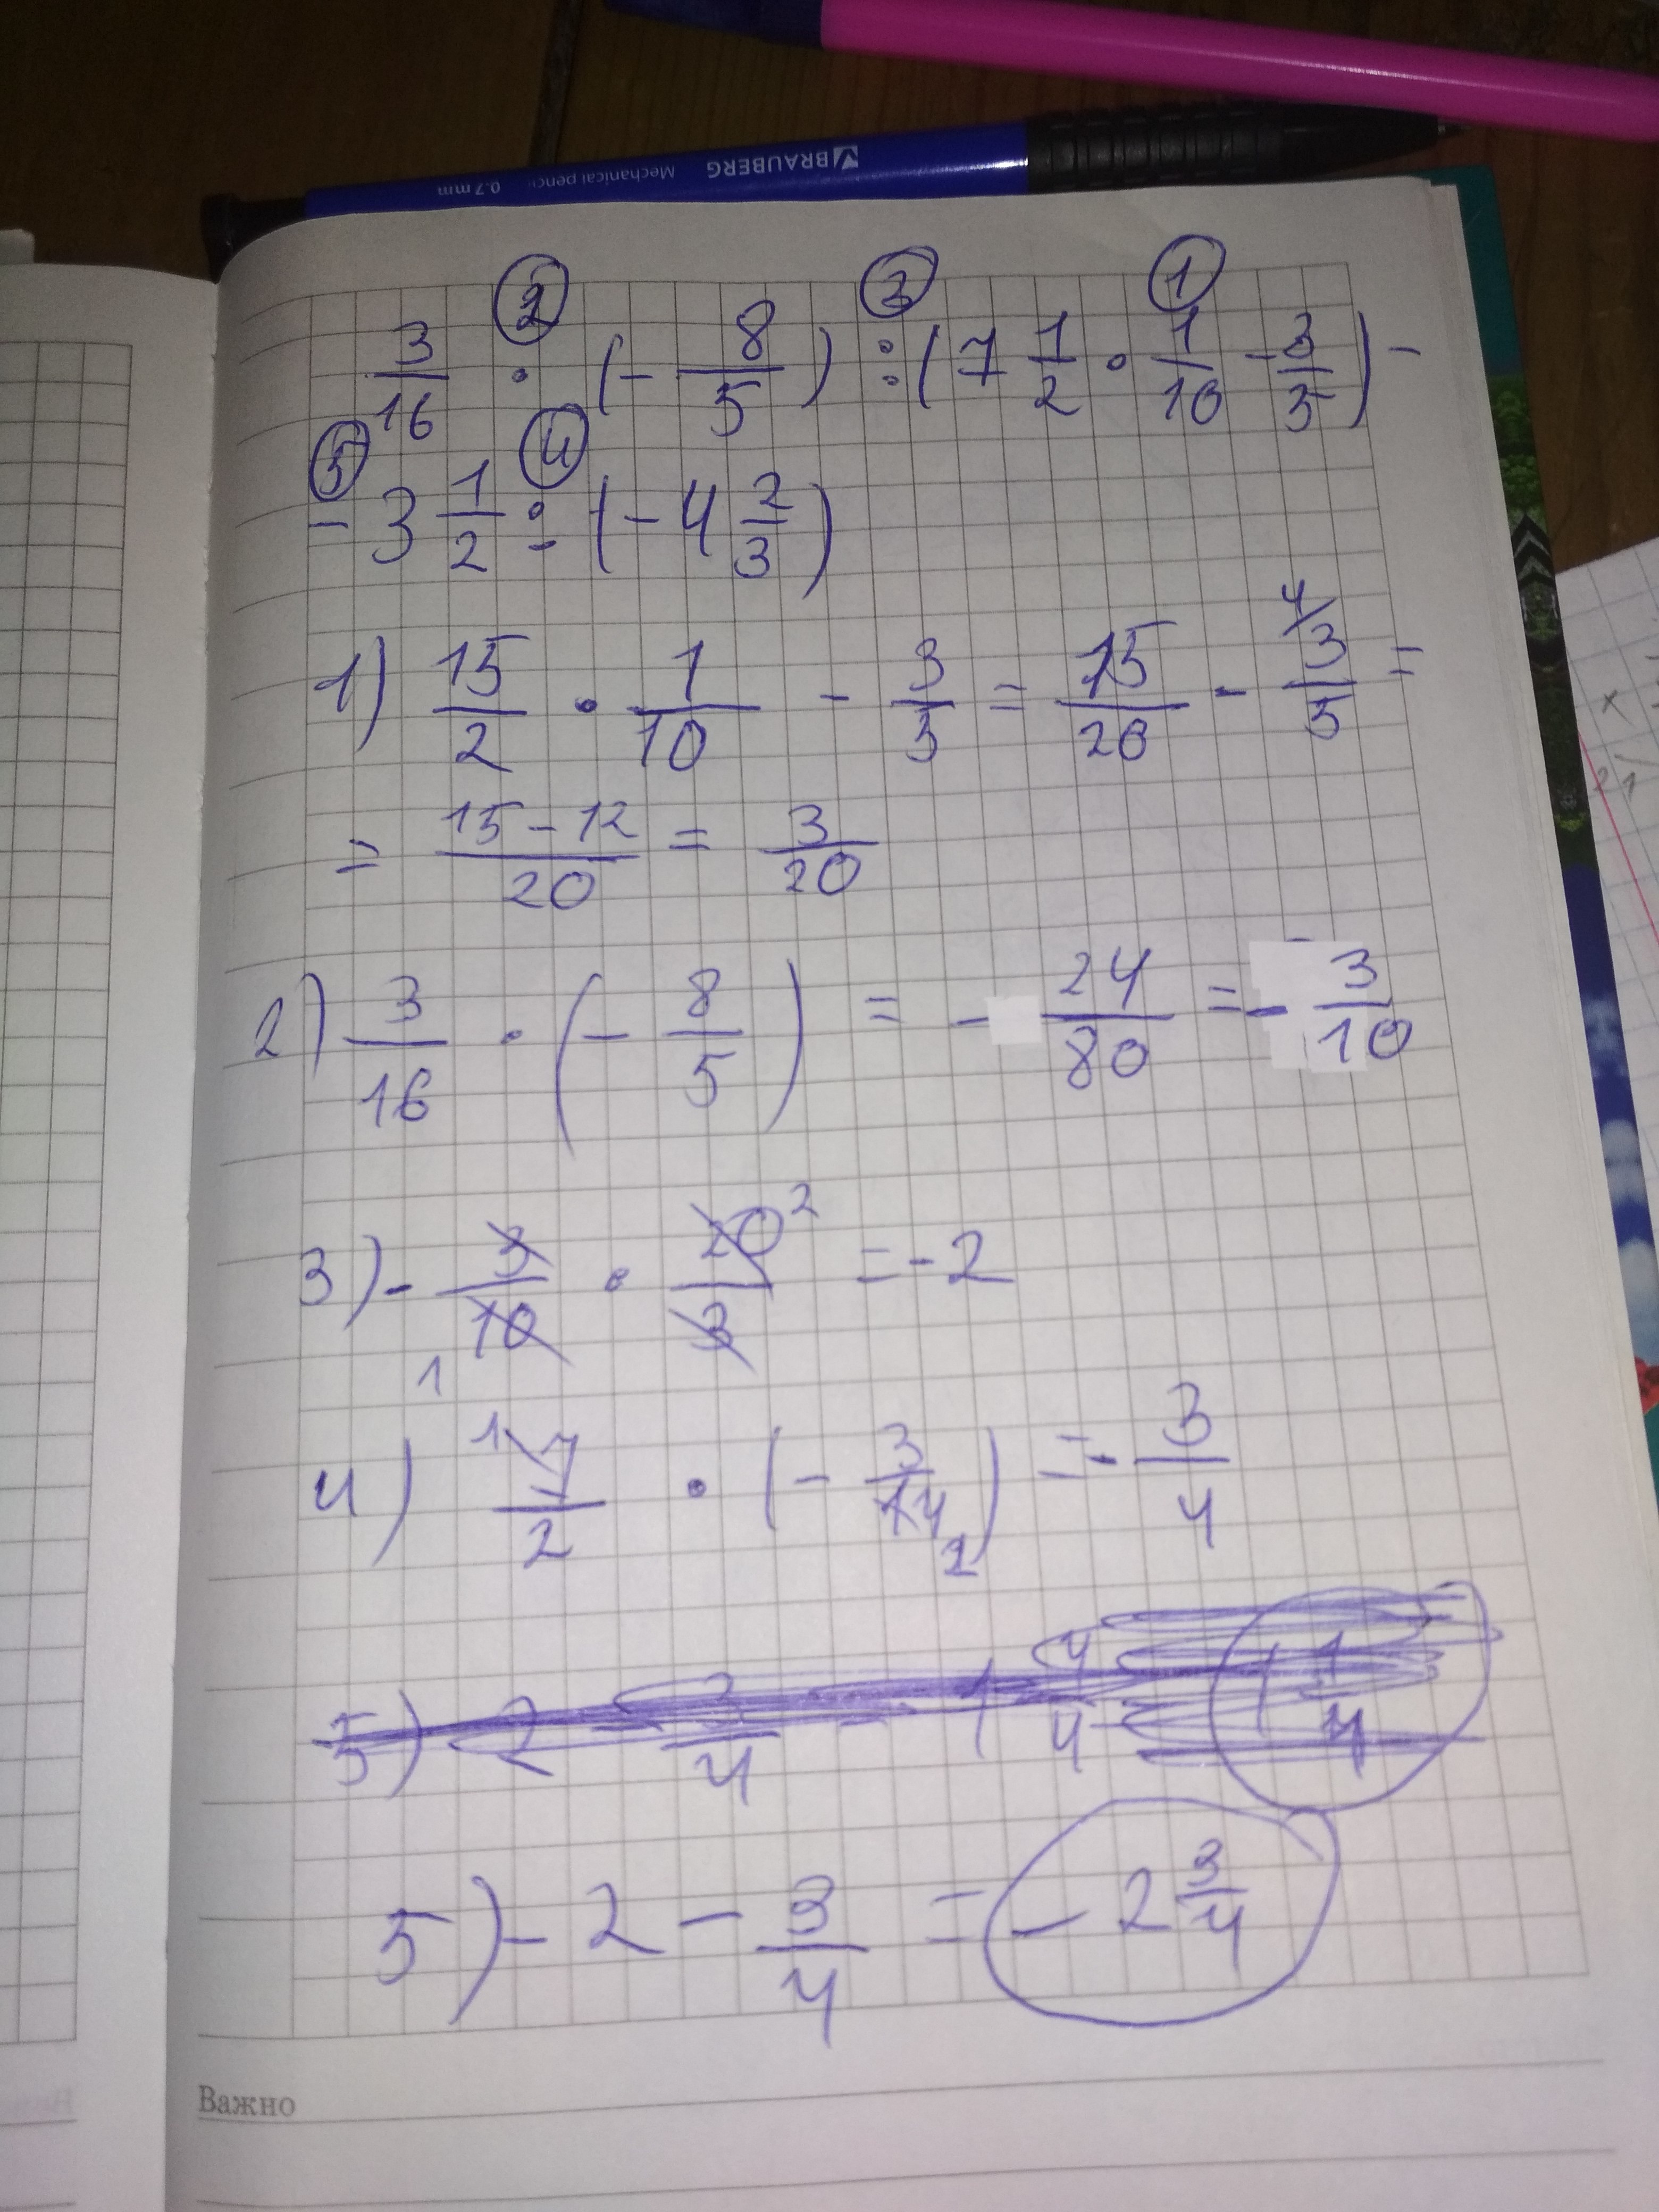 BRAUBERG Mechanical pencil 0.7 mm
② ③ ①
3/16 · (- 8/5) : (7 1/2 · 1/10 - 3/5) -
⑤ ④
- 3 1/2 : (- 4 2/3)
1) 15/2 · 1/10 - 3/5 = 15/20 - 4/ 3/5 =
= 15-12/20 = 3/20
2) 3/16 · (- 8/5) = - 24/80 = - 3/10
3) - 3/10 1 · 20 2/3 = -2
4) 1 7/2 · (- 3/14 2) = - 3/4
5) - 2 - 3/4 = - 2 3/4
Важно